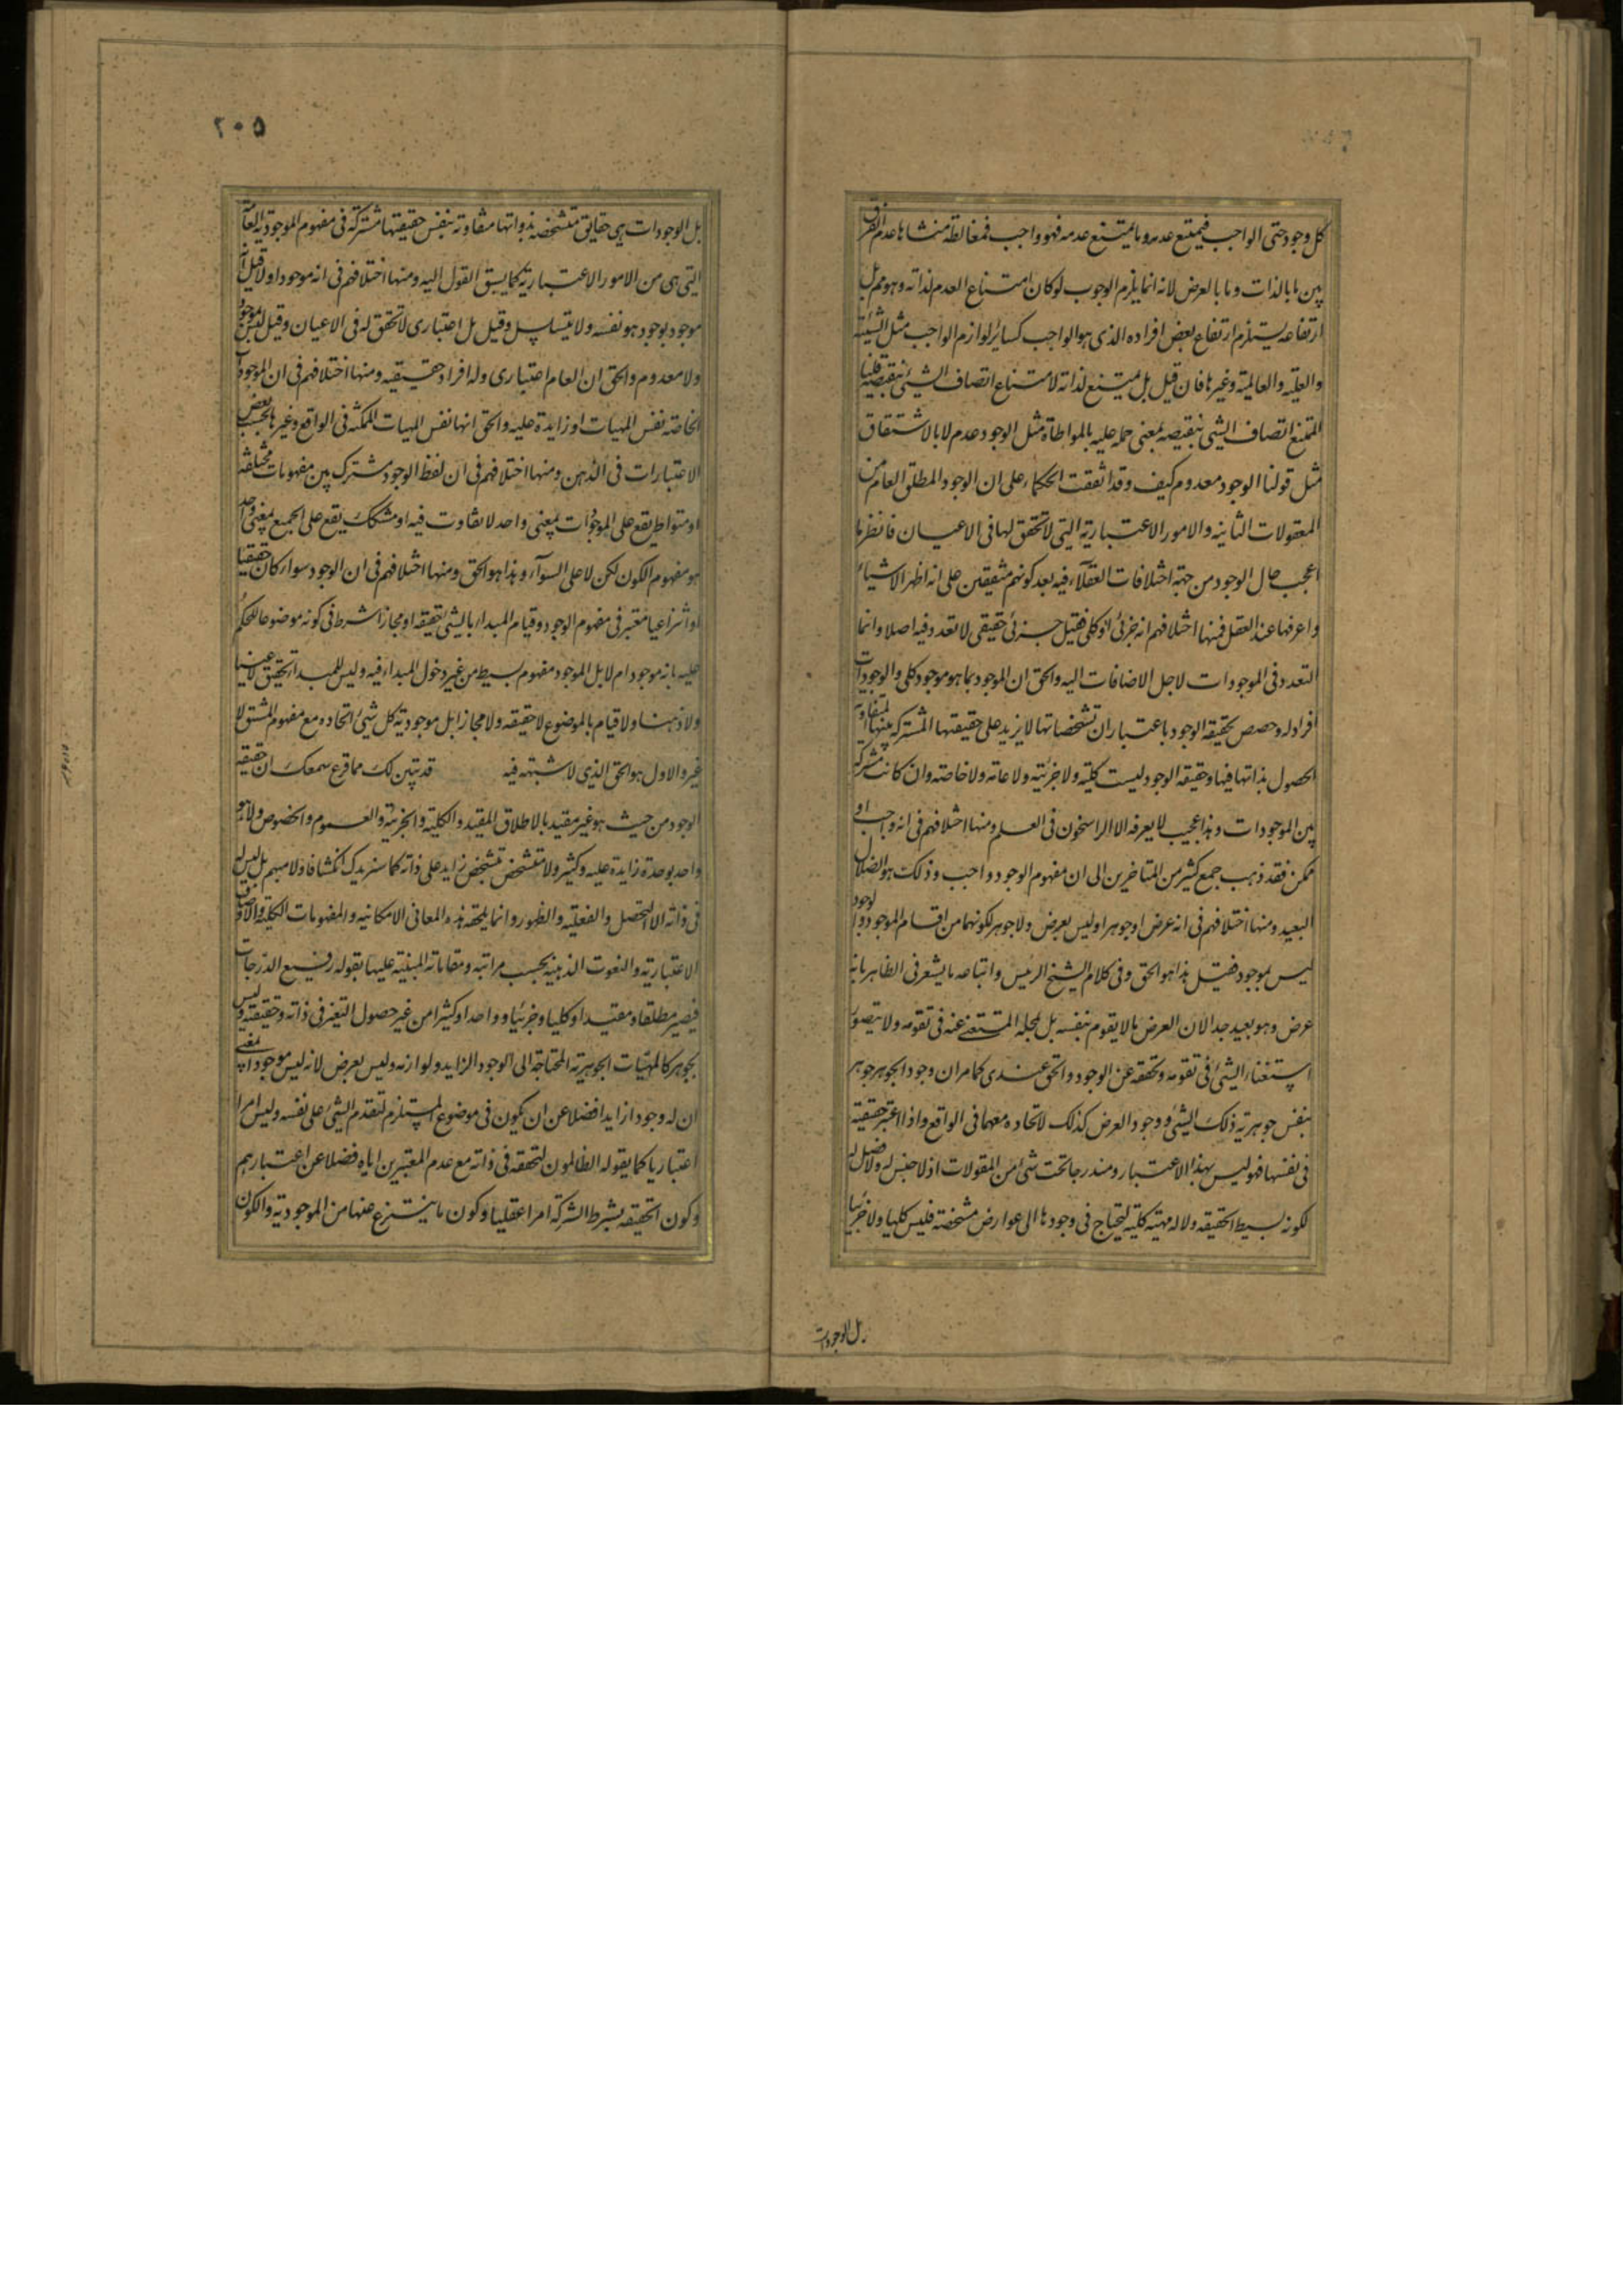 كل وجود حتى الواجب فيمتنع عدمه وما يمتنع عدمه فهو واجب فمغالطة منشاها عدم الفرق
بين ما بالذات وما بالعرض لانه انما يلزم الوجوب لو كان امتناع العدم لذاته وهو مم بل
ارتفاعه يستلزم ارتفاع بعض افراده الذى هو الواجب كسائر لوازم الواجب مثل الشيئية
والعلية والعالمية وغيرها فان قيل بل يمتنع لذاته لامتناع اتصاف الشئ بنقيضه قلنا
الممتنع اتصاف الشئ بنقيضه بمعنى حمله عليه بالمواطاة مثل الوجود عدم لا بالاشتقاق
مثل قولنا الوجود معدوم كيف وقد اتفقت الحكماء على ان الوجود المطلق العام من
المعقولات الثانية والامور الاعتبارية التى لا تحقق لها فى الاعيان فانظر ما
اعجب حال الوجود من جهة اختلافات العقلاء فيه بعد كونهم متفقين على انه اظهر الاشياء
واعرفها عند العقل فمنها اختلافهم انه جزئى او كلى فقيل جزئى حقيقى لا تعدد فيه اصلا وانما
التعدد فى الموجودات لاجل الاضافات اليه والحق ان الموجود بما هو موجود كلى والوجودات
افراد له وحصص لحقيقة الوجود باعتبار ان تشخصاتها لا يزيد على حقيقتها المشتركة بينها المتفاوتة
الحصول بذاتها فيها وحقيقة الوجود ليست كلية ولا جزئية ولا عامة ولا خاصة وان كانت مشتركة
بين الموجودات وهذا عجيب لا يعرفه الا الراسخون فى العلم ومنها اختلافهم فى انه واجب او
ممكن فقد ذهب جمع كثير من المتاخرين الى ان مفهوم الوجود واجب وذلك هو الضلال
البعيد ومنها اختلافهم فى انه عرض او جوهر او ليس بعرض ولا جوهر لكونهما من اقسام الموجود والوجود
ليس بموجود فقيل هذا هو الحق وفى كلام الشيخ الرئيس واتباعه ما يشعر فى الظاهر بانه
عرض وهو بعيد جدا لان العرض ما لا يقوم بنفسه بل لمحله المستغنى عنه فى تقومه ولا يتصور
استغناء الشئ فى تقومه وتحققه عن الوجود والحق عندى كما مر ان وجود الجوهر جوهر
بنفس جوهرية ذلك الشئ ووجود العرض كذلك لاتحاده معهما فى الواقع واذا اعتبر حقيقته
فى نفسها فهو ليس بهذا الاعتبار ومندرجا تحت شئ من المقولات اذ لا جنس له ولا فصل له
لكونه بسيط الحقيقة ولا له مهية كلية لتحتاج فى وجودها الى عوارض مشخصة فليس كليا ولا جزئيا
بل الوجودات
٢٠٥
بل الوجودات هى حقايق متشخصة بذواتها متفاوتة بنفس حقيقتها مشتركة فى مفهوم الموجودية العامة
التى هى من الامور الاعتبارية كما يسبق القول اليه ومنها اختلافهم فى انه موجود او لا قيل انه
موجود بوجود هو نفسه ولا يتسلسل وقيل بل اعتبارى لا تحقق له فى الاعيان وقيل ليس بموجود
ولا معدوم والحق ان العام اعتبارى وله افراد حقيقيه ومنها اختلافهم فى ان الوجودات
الخاصة نفس المهيات او زايدة عليه والحق انها نفس المهيات الممكنه فى الواقع وغيرها بحسب بعض
الاعتبارات فى الذهن ومنها اختلافهم فى ان لفظ الوجود مشترك بين مفهومات مختلفة
او متواطئ يقع على الموجودات بمعنى واحد لا تفاوت فيه او مشكك يقع على الجميع بمعنى واحد
هو مفهوم الكون لكن لا على السوآء وهذا هو الحق ومنها اختلافهم فى ان الوجود سواء كان حقيقيا
او انتزاعيا معتبر فى مفهوم الوجود وقيام المبداء بالشئ حقيقة او مجازا شرط فى كونه موضوعا للحكم
عليه بانه موجود ام لا بل الموجود مفهوم بسيط من غير دخول المبداء فيه وليس للمبداء تحقيق لا عينا
ولا ذهنا ولا قيام بالموضوع لا حقيقة ولا مجازا بل موجودية كل شئ اتحاده مع مفهوم المشتق لا
غير والاول هو الحق الذى لا شبهة فيه قد تبين لك مما قرع سمعك ان حقيقة
الوجود من حيث هو غير مقيد بالاطلاق المقيد والكلية والجزئية والعموم والخصوص ولا هو
واحد بوحدة زايدة عليه وكثير ولا متشخص بتشخص زايد على ذاته كما سنزيدك انكشافا ولا مبهم بل ليس له
فى ذاته الا التحصل والفعلية والظهور وانما يلحقه هذه المعانى الامكانيه والمفهومات الكلية والاوصاف
الاعتبارية والنعوت الذهنية بحسب مراتبه ومقاماته المبنية عليها بقوله رفيع الدرجات
فيصير مطلقا ومقيدا وكليا وجزئيا وواحدا وكثيرا من غير حصول التغير فى ذاته وحقيقته وليس
بجوهر كالمهيات الجوهرية المحتاجة الى الوجود الزايد ولوازمه وليس بعرض لانه ليس موجودا بمعنى
ان له وجودا زايدا فضلا عن ان يكون فى موضوع المستلزم لتقدم الشئ على نفسه وليس امرا
اعتباريا كما يقوله الظالمون لتحققه فى ذاته مع عدم المعتبرين اياه فضلا عن اعتبارهم
وكون الحقيقه بشرط الشركة امرا عقليا وكون ما ينتزع عنها من الموجودية والكون